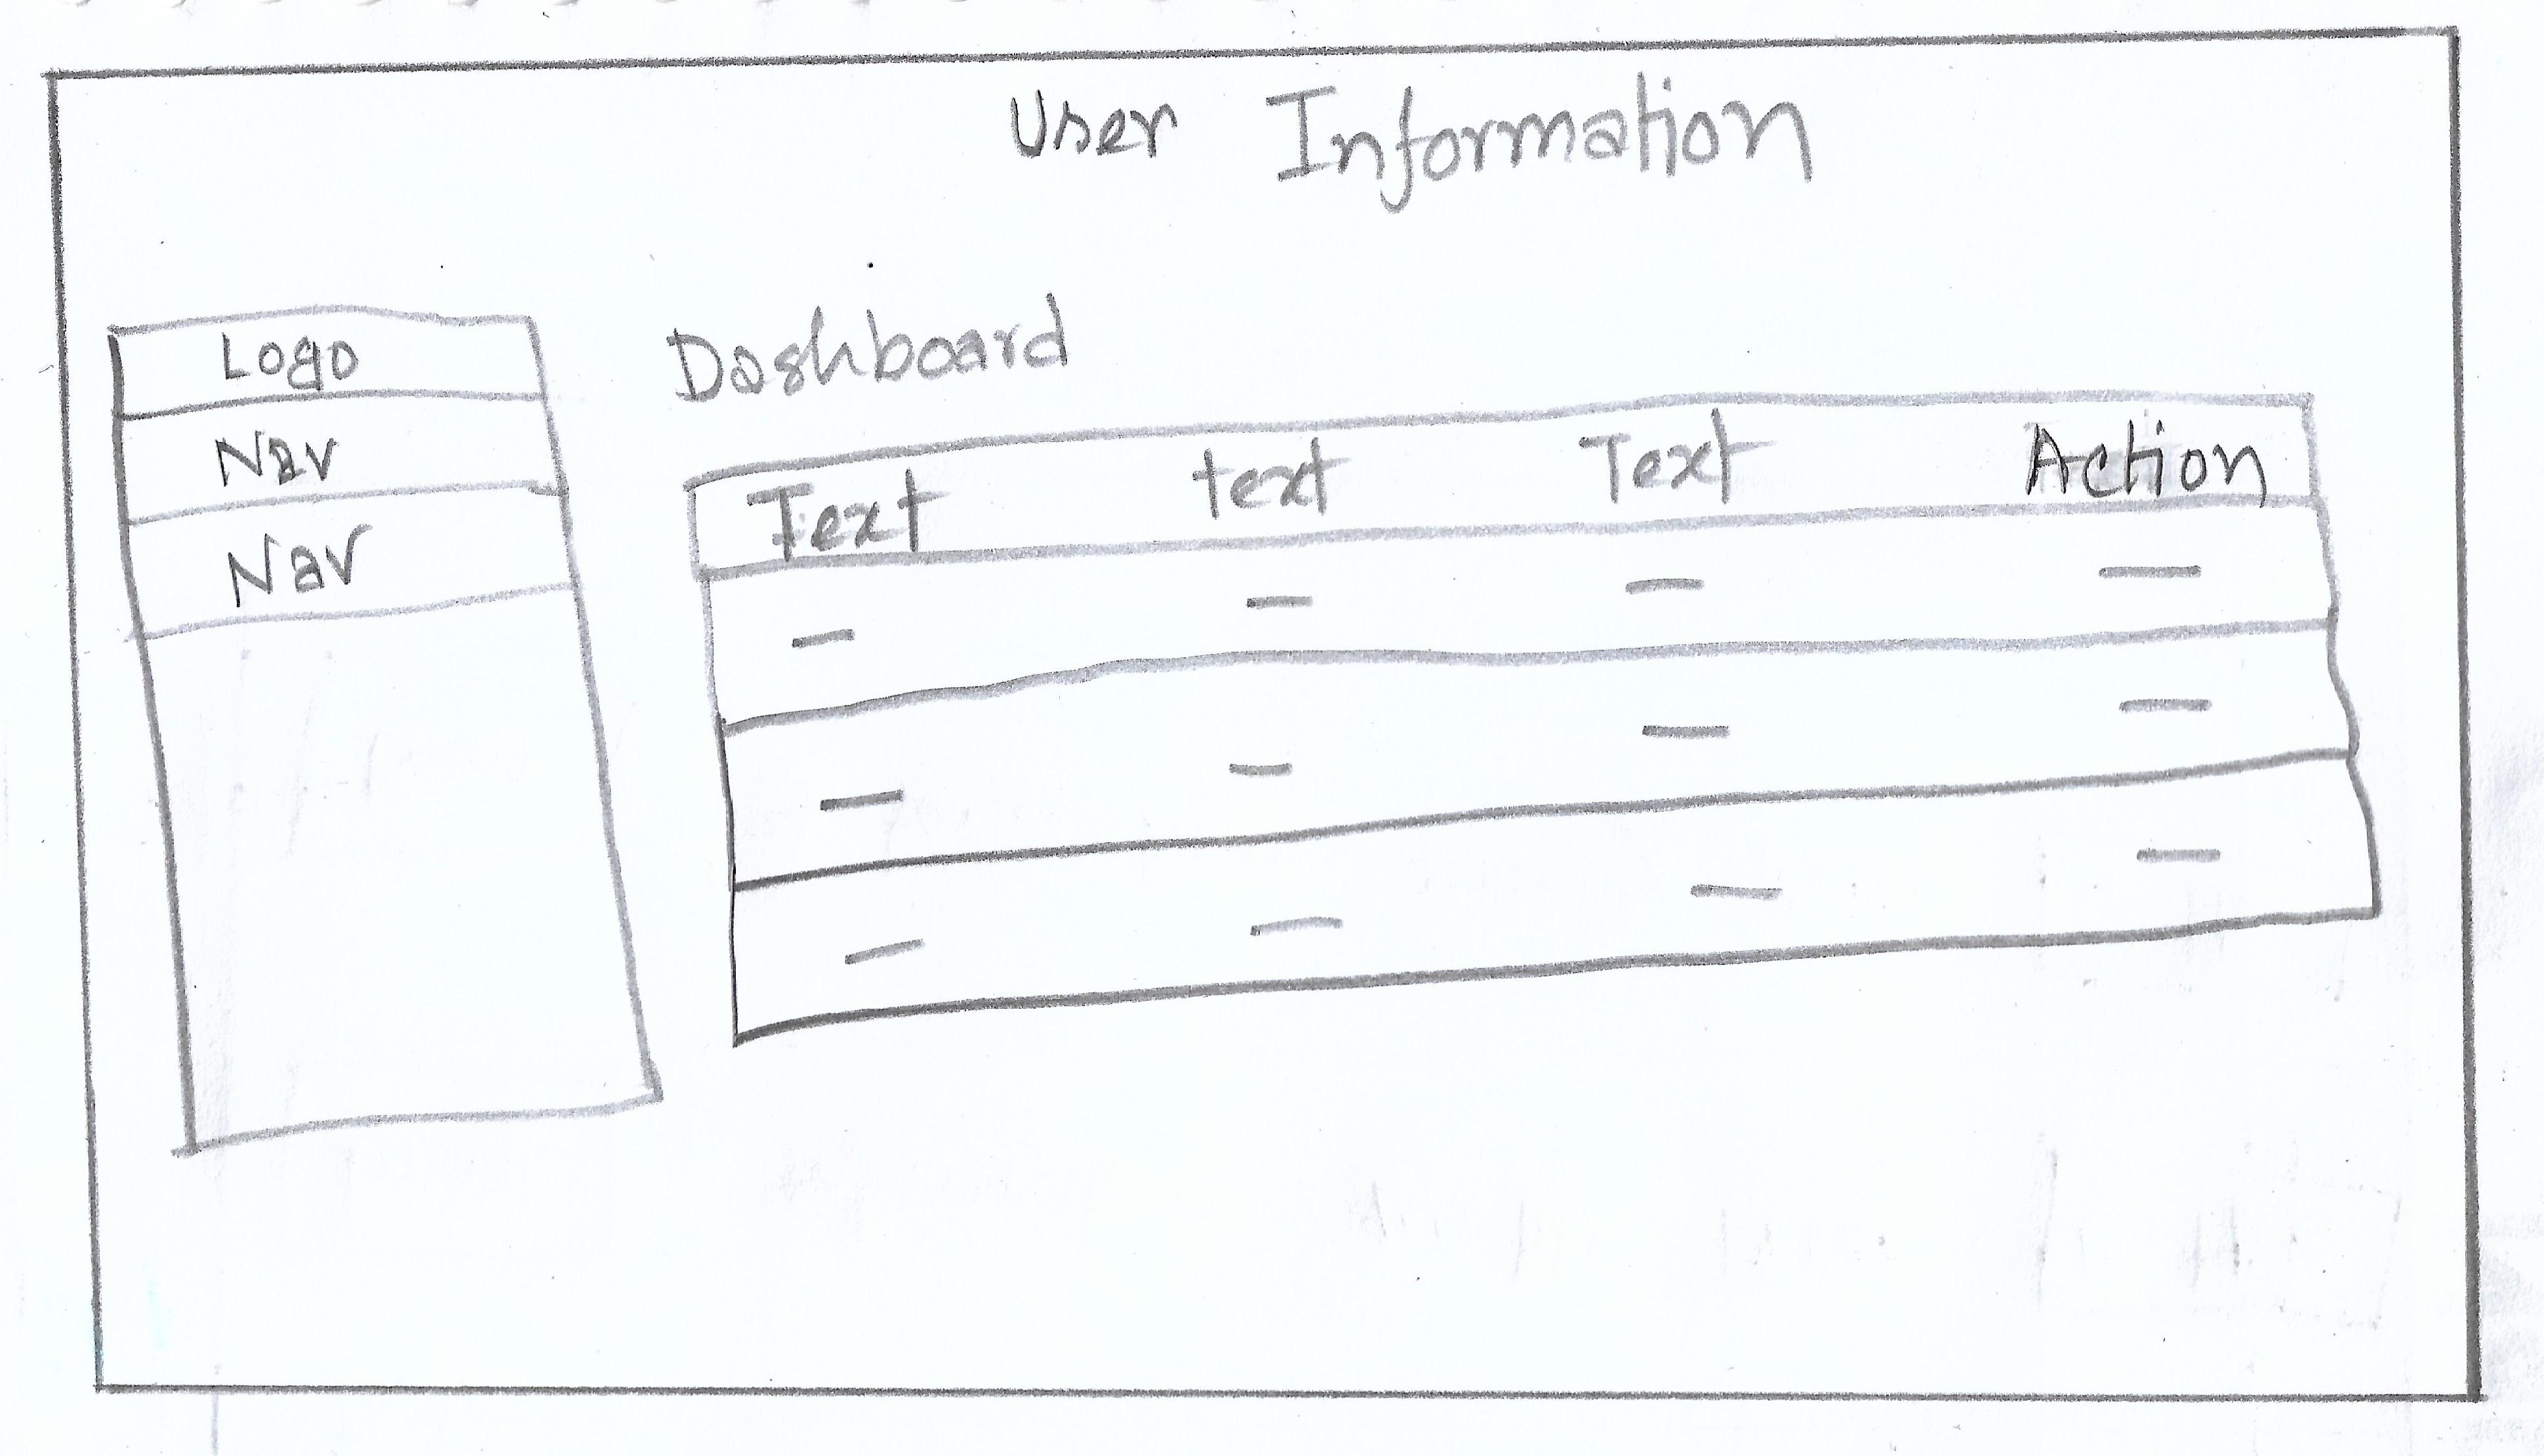 User Information
Logo
Nav
Nav
Dashboard
Text text Text Action
— — — —
— — — —
— — — —